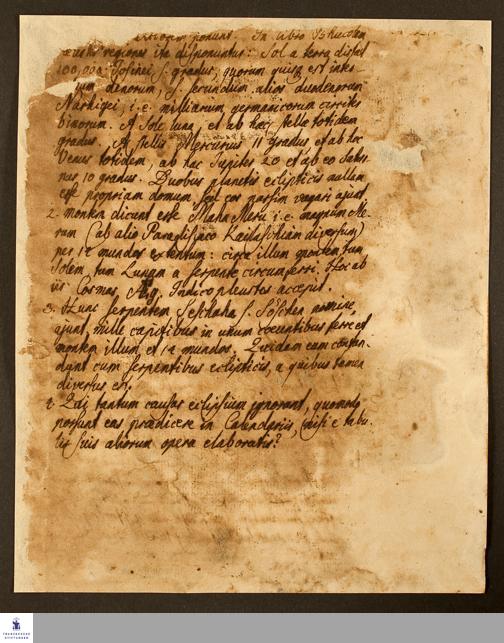 ponunt. In libro
regiones ita disponuntur: Sol a terra distat
100,000 gradus, quorum quisq est
denorum, secundum alios duodenorum
i.e. milliarum germanicorum circiter
binorum. A Sole luna, et ab hac stellæ totidem
gradus. A stellis Mercurius 11 gradus et ab hoc
Venus totidem, ab hac Jupiter 20 et ab eo Satur-
nus 10 gradus. Duobus planetis eclipticis nullam
esse propriam domum, sed eos passim vagari ajunt
2. montem dicunt esse Maha Meru i.e. magnum Me-
rum (ab alio Paradisiaco diversum)
per 14 mundos extentum: circa illum montem tum
Solem, tum Lunam a serpente circumferri. Hoc ab
iis Cosmas, Indicopleustes accepit.
3. Hunc serpentem s. nomine,
ajunt, mille capitibus in unum coeuntibus ferre et
montem illum, et 14 mundos. Quidam eum confun-
dunt cum serpentibus eclipticis, a quibus tamen
diversus est.
4. Qui tantum causas eclipsium ignorant, quomodo
possunt eas prædicere in Calendariis, nisi e tabu-
lis suis aliorum opera elaboratis?
FRANCKESCHE
STIFTUNGEN